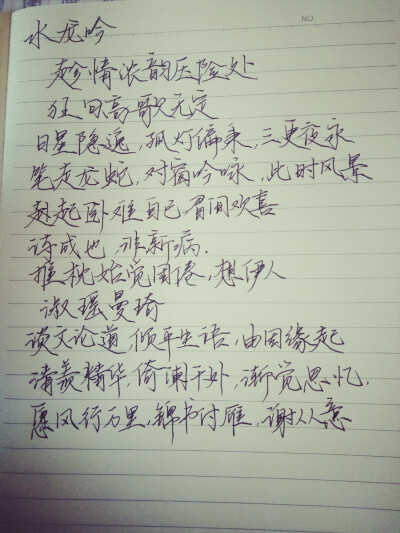 水龙吟
趁情浓韵压险处
狂同高歌无定
日星隐逸,孤灯偏来,三更夜永
笔走龙蛇,对窗吟咏,此时风景
起卧难自已眉间欢喜
诗成也,非新病.
推枕始觉困倦,想伊人
淑瑶曼琦
谈文论道,倾平生语,由因缘起
清羡精华,倚阑干处,渐觉思忆.
愿风行万里,锦书付雁,谢人意
NO.